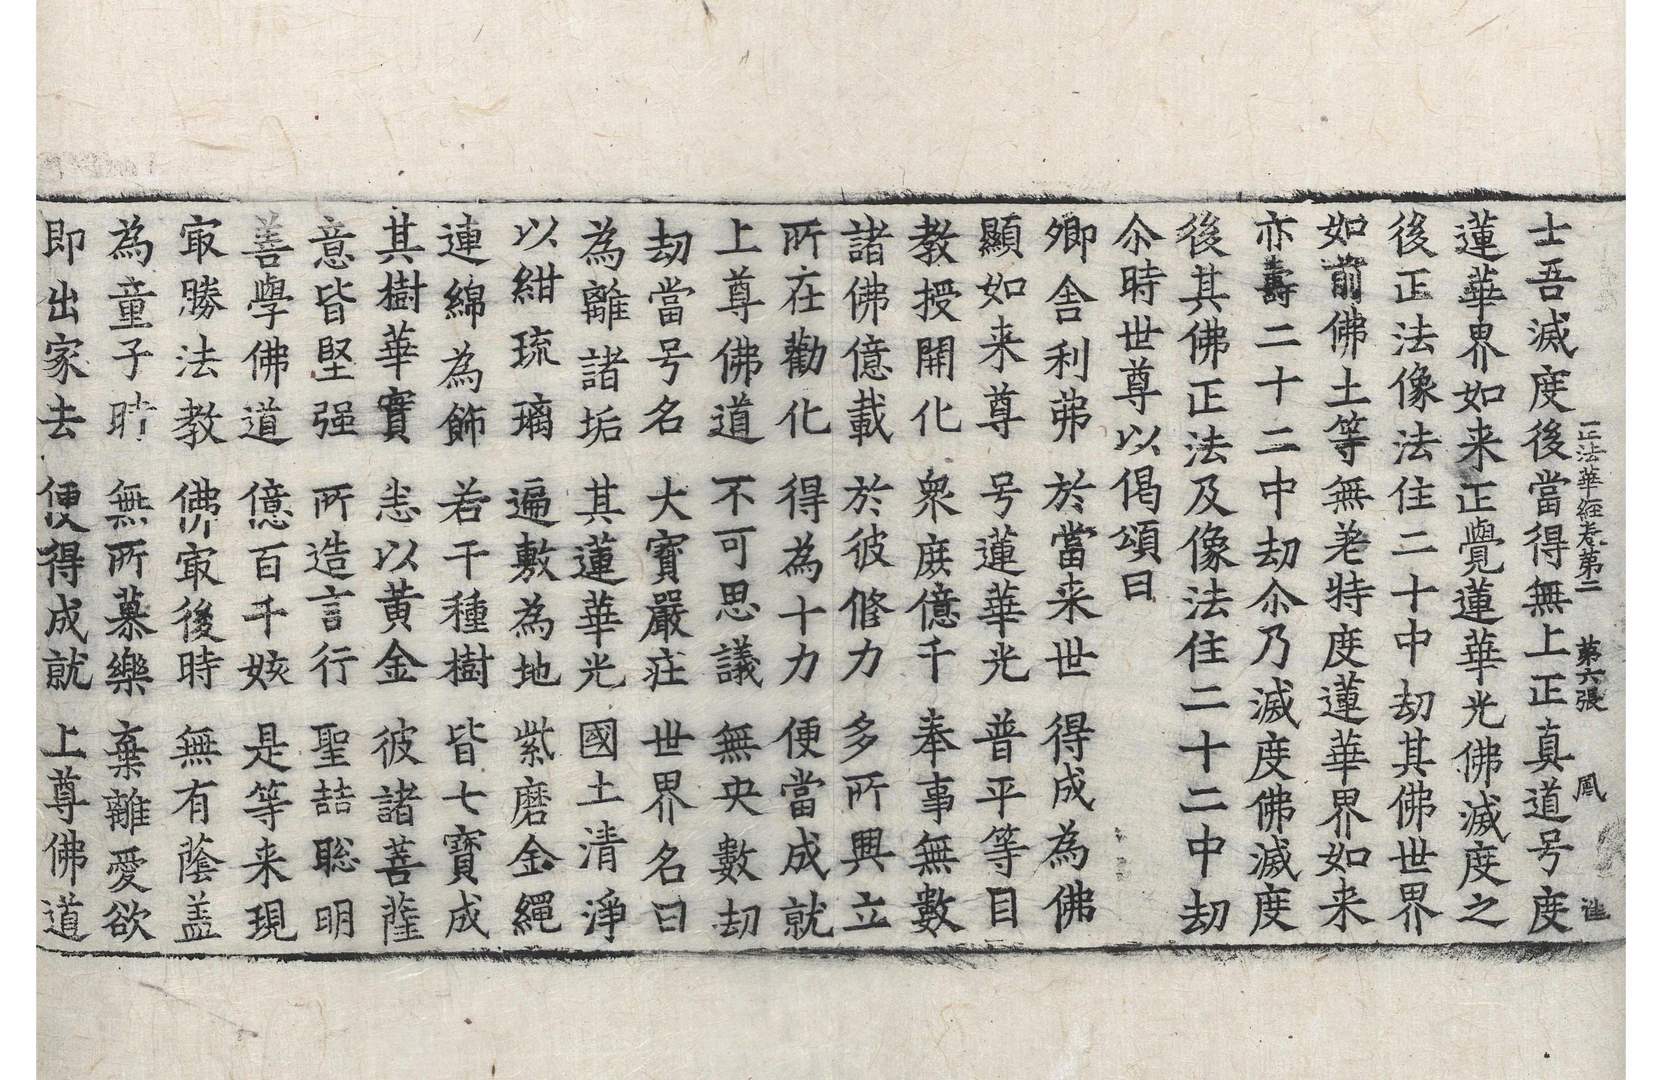 正法華經卷第二 第六張 鳳
士吾滅度後當得無上正真道号度
蓮華界如来正覺蓮華光佛滅度之
後正法像法住二十中劫其佛世界
如前佛土等無差特度蓮華界如来
亦壽二十二中劫尒乃滅度佛滅度
後其佛正法及像法住二十二中劫
尒時世尊以偈頌曰
卿舍利弗 於當来世 得成為佛
顯如来尊 号蓮華光 普平等目
教授開化 衆庶億千 奉事無數
諸佛億載 於彼修力 多所興立
所在勸化 得為十力 便當成就
上尊佛道 不可思議 無央數劫
劫當号名 大寶嚴莊 世界名曰
為離諸垢 其蓮華光 國土清淨
以紺琉璃 遍敷為地 紫磨金繩
連綿為飾 若干種樹 皆七寶成
其樹華實 悉以黄金 彼諸菩薩
意皆堅强 所造言行 聖喆聡明
善學佛道 億百千姟 是等来現
冣勝法教 佛冣後時 無有蔭盖
為童子時 無所慕樂 棄離愛欲
即出家去 便得成就 上尊佛道